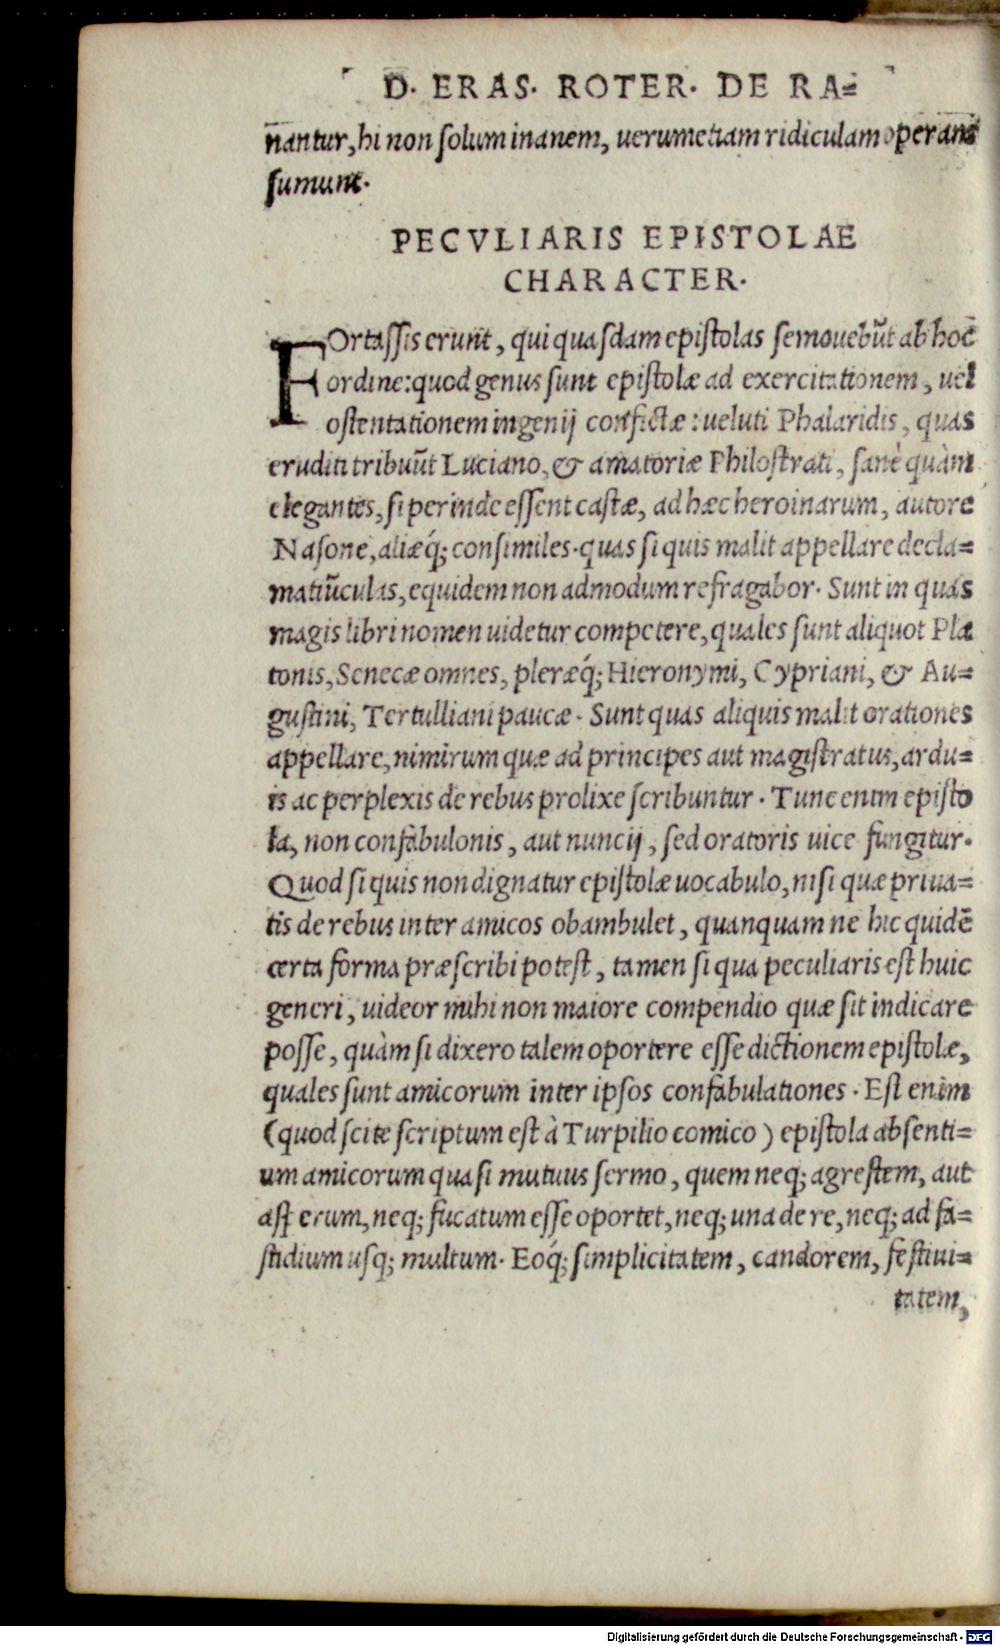 D. ERAS. ROTER. DE RA=
nantur, hi non solum inanem, uerumetiam ridiculam operam
sumunt.
PECVLIARIS EPISTOLAE
CHARACTER.
FOrtassis erunt, qui quasdam epistolas semouebũt ab hoc
ordine: quod genus sunt epistolæ ad exercitationem, uel
ostentationem ingenij confictæ: ueluti Phalaridis, quas
eruditi tribuũt Luciano, & amatoriæ Philostrati, sanè quàm
elegantes, si perinde essent castæ, ad hæc heroinarum, autore
Nasone, aliæq́; consimiles. quas si quis malit appellare decla=
matiũculas, equidem non admodum refragabor. Sunt in quas
magis libri nomen uidetur competere, quales sunt aliquot Pla
tonis, Senecæ omnes, pleræq́; Hieronymi, Cypriani, & Au=
gustini, Tertulliani paucæ. Sunt quas aliquis malit orationes
appellare, nimirum quæ ad principes aut magistratus, ardu=
is ac perplexis de rebus prolixe scribuntur. Tunc enim episto
la, non confabulonis, aut nuncij, sed oratoris uice fungitur.
Quod si quis non dignatur epistolæ uocabulo, nisi quæ priua=
tis de rebus inter amicos obambulet, quanquam ne hic quidẽ
certa forma præscribi potest, tamen si qua peculiaris est huic
generi, uideor mihi non maiore compendio quæ sit indicare
posse, quàm si dixero talem oportere esse dictionem epistolæ,
quales sunt amicorum inter ipsos confabulationes. Est enim
(quod scite scriptum est à Turpilio comico) epistola absenti=
um amicorum quasi mutuus sermo, quem neq; agrestem, aut
asperum, neq; fucatum esse oportet, neq; una de re, neq; ad fa=
stidium usq; multum. Eoq́; simplicitatem, candorem, festiui=
tatem,
Digitalisierung gefördert durch die Deutsche Forschungsgemeinschaft - DFG